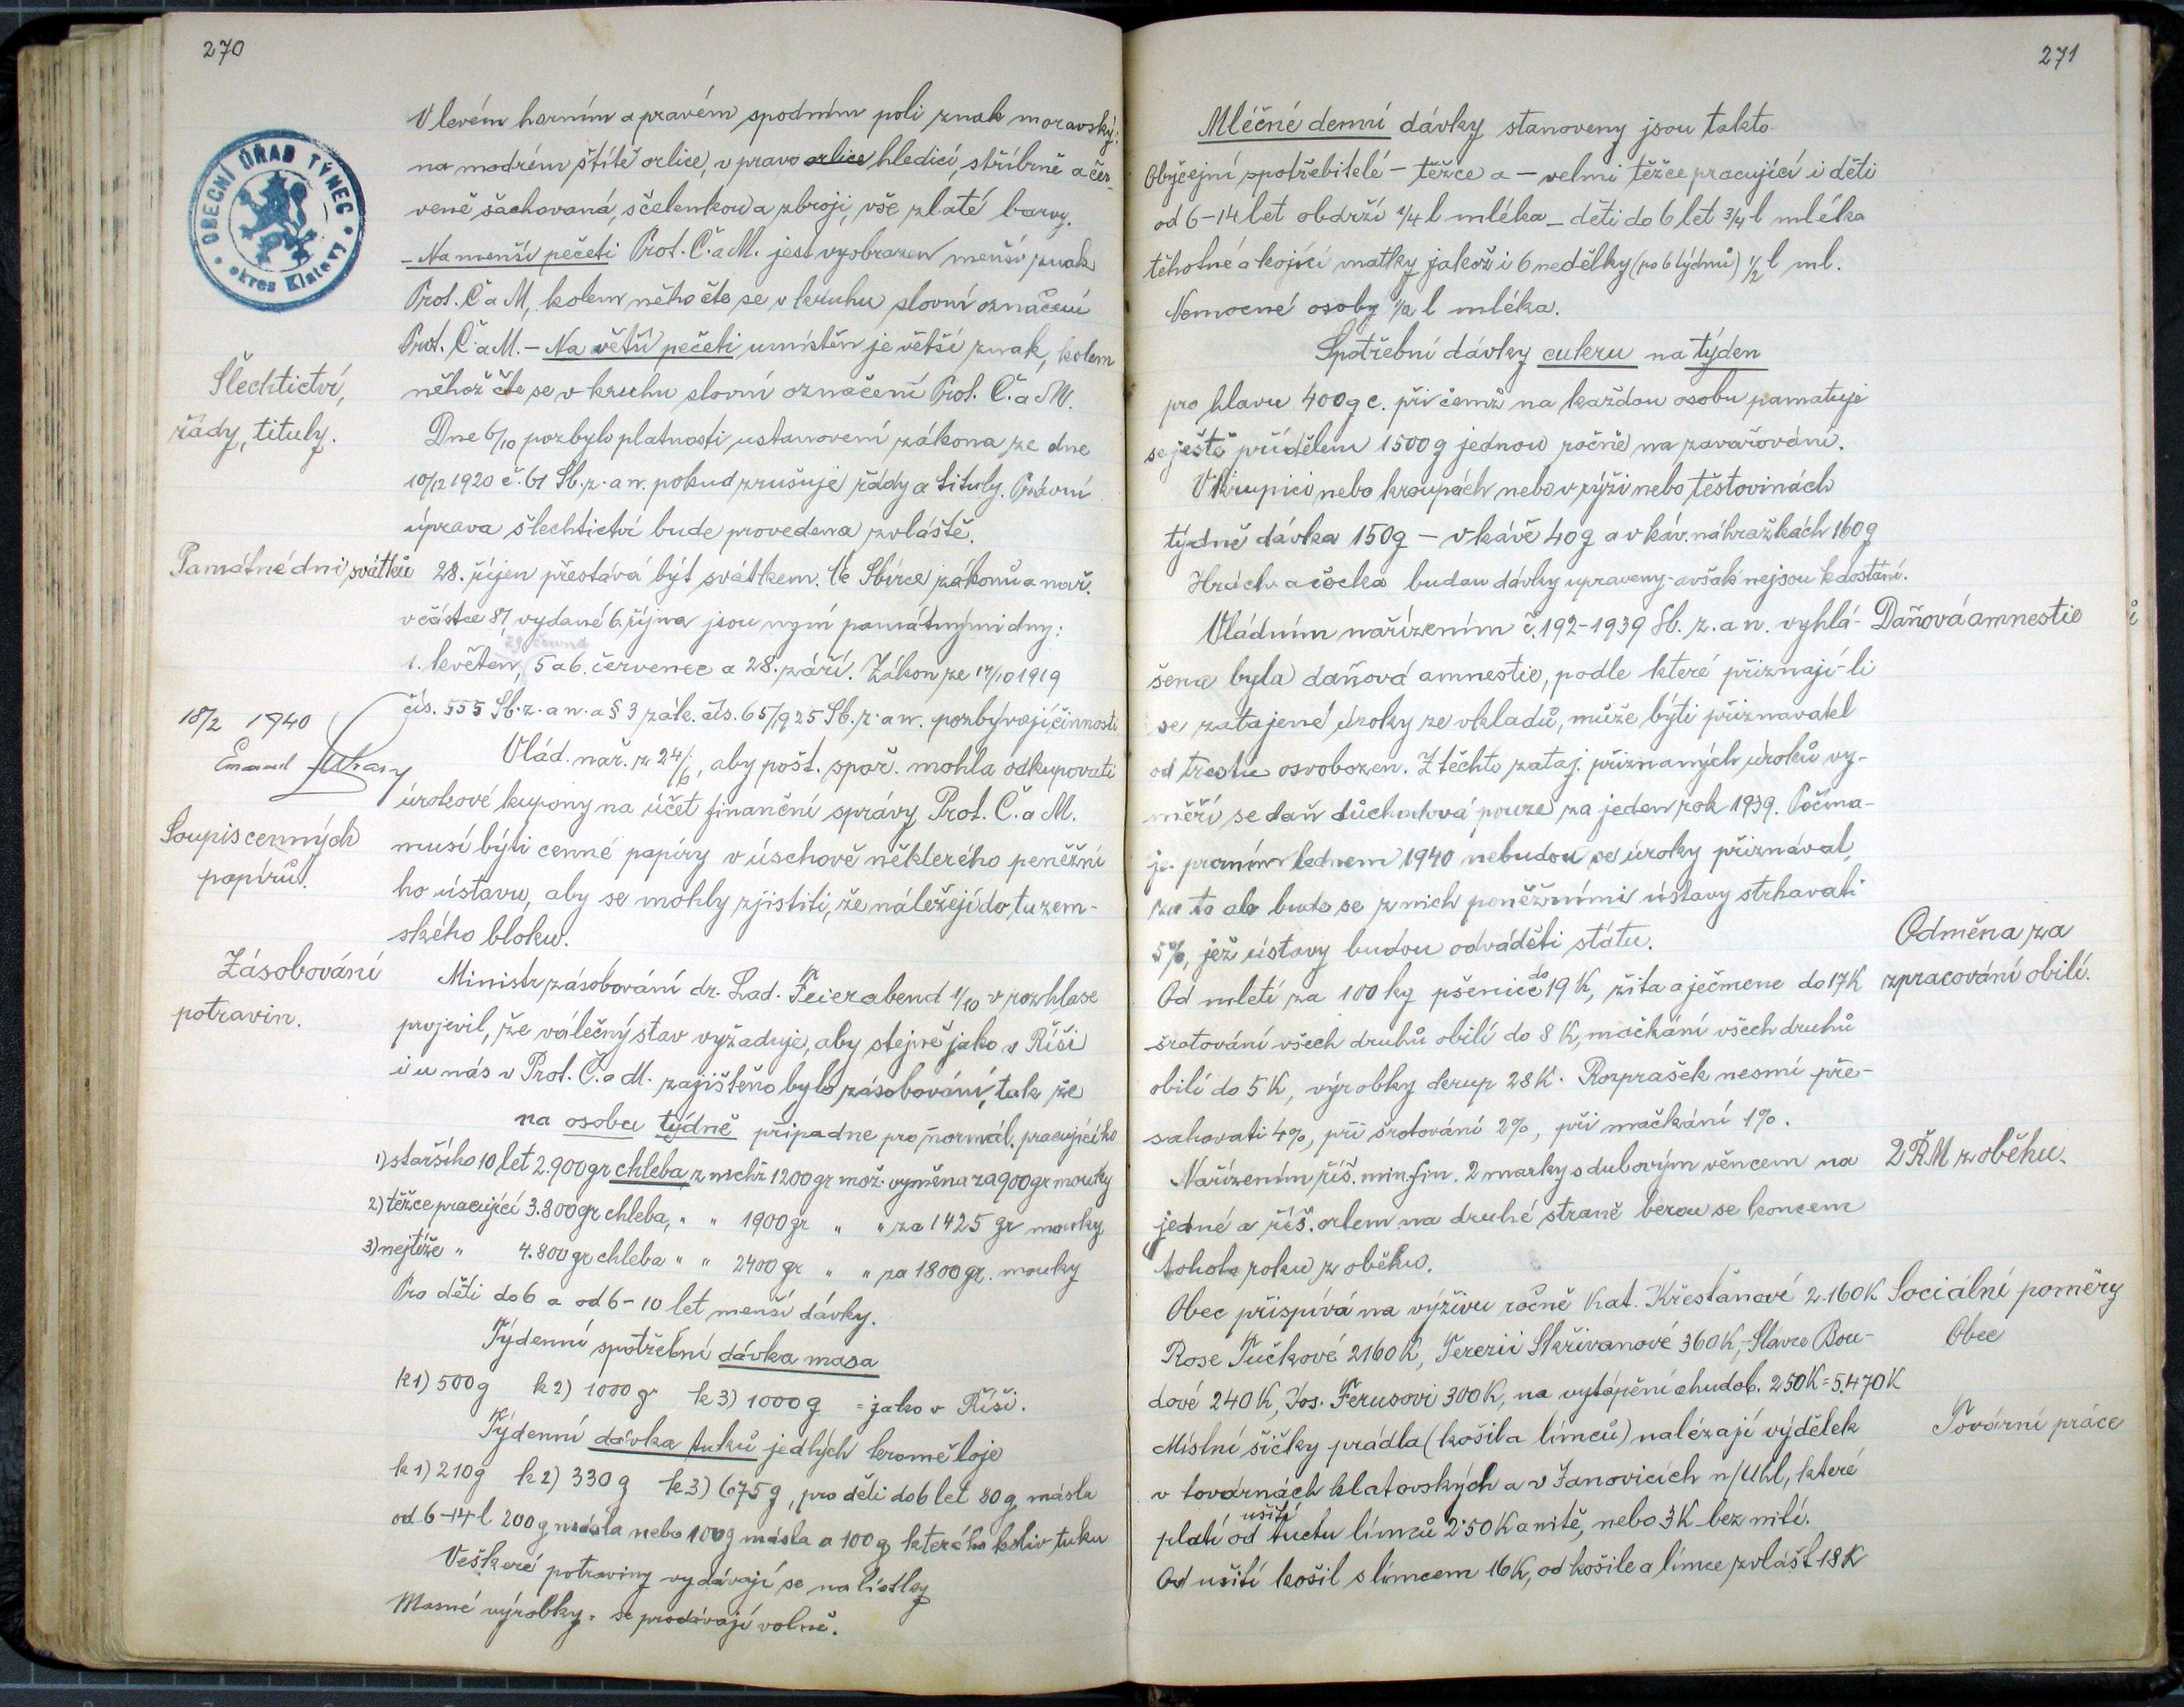 270
V levém horním a pravém spodním poli znak moravský:
na modrém štítě orlice, v pravo orlice hledící, stříbrně a čer-
veně šachovaná, s čelenkou a zbrojí, vše zlaté barvy.
- Na menší pečeti Prot. Č. a M. jest vyobrazen menší znak
Prot. Č a M, kolem něho čte se v kruhu slovní označení
Prot. Č. a M. - Na větší pečeti umístěn je větší znak, kolem
něhož čte se v kruhu slovní označení Prot. Č. a M.
OBECNÍ ÚŘAD TÝNEC
okres Klatovy
Šlechtictví,
řády, tituly.
Dne 6/10 pozbylo platnosti ustanovení zákona ze dne
10/12 1920 č. 61 Sb. z. a n. pokud zrušuje řády a tituly. Právní
úprava šlechtictví bude provedena zvláště.
Památné dni, svátků
28. říjen přestává být svátkem. Ve Sbírce zákonů a nař.
v částce 81 vydané 6. října jsou nyní památnými dny:
29 června
1. květen, 5 a 6. červenec a 28. září. Zákon ze 14/10 1919
čís. 555 Sb. z. a n. a § 3 zák. čís. 65/1925 Sb. z. a n. pozbývají činnosti
18/2 1940
Vlád. nař. z 24/6, aby pošt. spoř. mohla odkupovati
úrokové kupony na účet finanční správy Prot. Č. a M.
Soupis cenných
papírů.
musí býti cenné papíry v úschově některého peněžní
ho ústavu, aby se mohly zjistiti, že náležejí do tuzem-
ského bloku.
Zásobování
potravin.
Ministr zásobování dr. Lad. Feierabend 1/10 v rozhlase
projevil, že válečný stav vyžaduje, aby stejně jako v Říši
i u nás v Prot. Č. a M. zajištěno bylo zásobování, tak že
na osobu týdně připadne pro normál. pracujícího
1) staršího 10 let 2.900 gr chleba, z nichž 1200 gr mož. výměna za 900 gr mouky
2) těžce pracující 3.800 gr chleba, " " 1900 gr " " za 1425 gr mouky
3) nejtěže " 4.800 gr chleba " " 2400 gr " " za 1800 gr. mouky
Pro děti do 6 a od 6 - 10 let menší dávky.
Týdenní spotřební dávka masa
k 1) 500 g k 2) 1000 g k 3) 1000 g = jako v Říši.
Týdenní dávka tuků jedlých kromě loje
k 1) 210 g k 2) 330 g k 3) 675 g, pro děti do 6 let 80 g másla
od 6-14 l 200 g másla nebo 100 g másla a 100 g kterého koliv tuku
Veškeré potraviny vydávají se na lístky
Masné výrobky se prodávají volně.
271
Mléčné denní dávky stanoveny jsou takto
Obyčejní spotřebitelé - těžce a - velmi těžce pracující i děti
od 6-14 let obdrží 1/4 l mléka - děti do 6 let 3/4 l mléka
těhotné a kojící matky jakož i 6 nedělky (po 6 týdnů) 1/2 l ml.
Nemocné osoby 1/2 l mléka.
Spotřební dávky cukru na týden
pro hlavu 400 g c. při čemž na každou osobu pamatuje
se ještě přídělem 1500 g jednou ročně na zavařování.
V krupici nebo kroupách nebo v rýži nebo těstovinách
týdně dávka 150 g - v kávě 40 g a v káv. náhražkách 160 g
Hrách a čočka budou dávky upraveny - avšak nejsou k dostání.
Vládním nařízením č. 192-1939 Sb. z. a n. vyhlá-
Daňová amnestie
šena byla daňová amnestie, podle které přiznají-li
se zatajené úroky ze vkladů, může býti přiznavatel
od trestu osvobozen. Z těchto zataj. přiznaných úroků vy-
měří se daň důchodová pouze za jeden rok 1939. Počína-
je prvním lednem 1940 nebudou se úroky přiznávat,
za to ale bude se z nich peněžními ústavy strhavati
5%, jež ústavy budou odváděti státu.
Odměna za
zpracování obilí.
Od mletí za 100 kg pšenice do 19 K, žita a ječmene do 17 K
šrotování všech druhů obilí do 8 K, mačkání všech druhů
obilí do 5 K, výrobky krup 28 K. Rozprašek nesmí pře-
sahovati 4%, při šrotování 2%, při mačkání 1%.
Nařízením říš. min. fin. 2 marky s dubovým věncem na
2 ŘM z oběhu.
jedné a říš. orlem na druhé straně berou se koncem
tohoto roku z oběhu.
Obec přispívá na výživu ročně Kat. Křesťanové 2.160 K
Sociální poměry
Obec
Rose Tučkové 2160 K, Terezii Skřivanové 360 K, Slávce Bou-
dové 240 K, Jos. Ferusovi 300 K, na vytápění chudob. 250 K = 5.470 K
Místní šičky prádla (košil a límců) nalézají výdělek
Tovární práce
v továrnách klatovských a v Janovicích n/Uhl, které
platí od ušití tuctu límců 2·50 K a nitě, nebo 3 K bez nití.
Od ušití košil s límcem 16 K, od košile a límce zvlášť 18 K